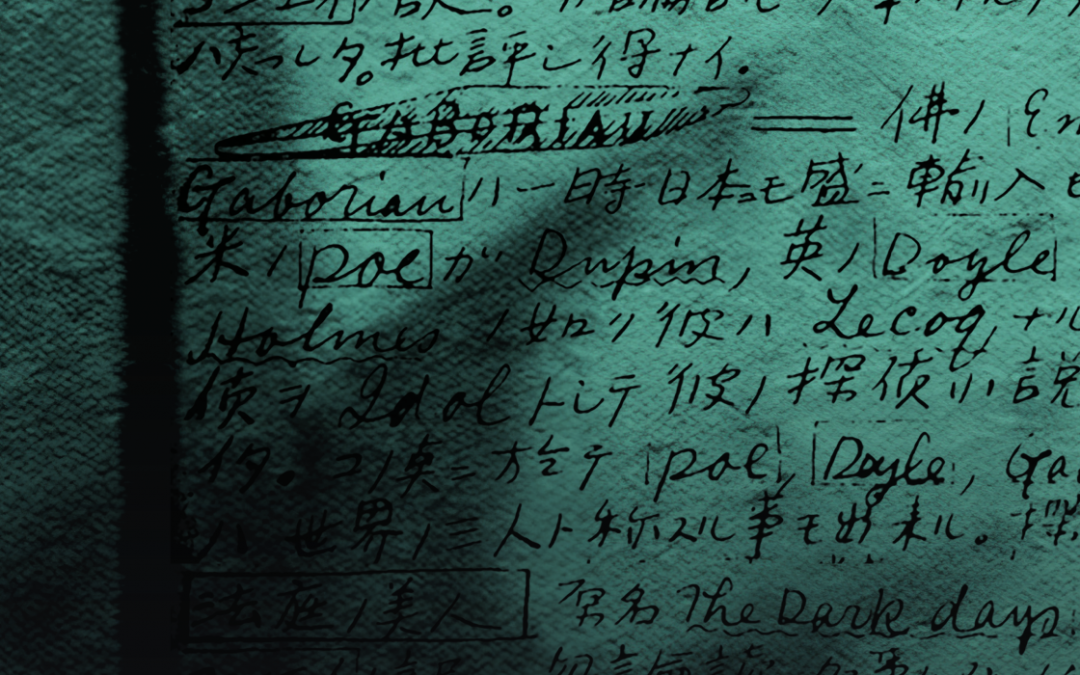 候ッタ。批評シ得ナイ.
GABORIAU == 佛ノ Em
Gaboriauハ一時日本ニモ盛ニ輸入セ
米ノPoeガDupin, 英ノDoyle
Holmesノ如ク彼ハLecoqナル
偵ヲIdolトシテ彼ノ探偵小説
イタ。コノ点ニ於テPoe, Doyle, Ga
ハ世界ノ三人ト称スル事モ出来ル。探
法廷ノ美人 原名 The Dark days